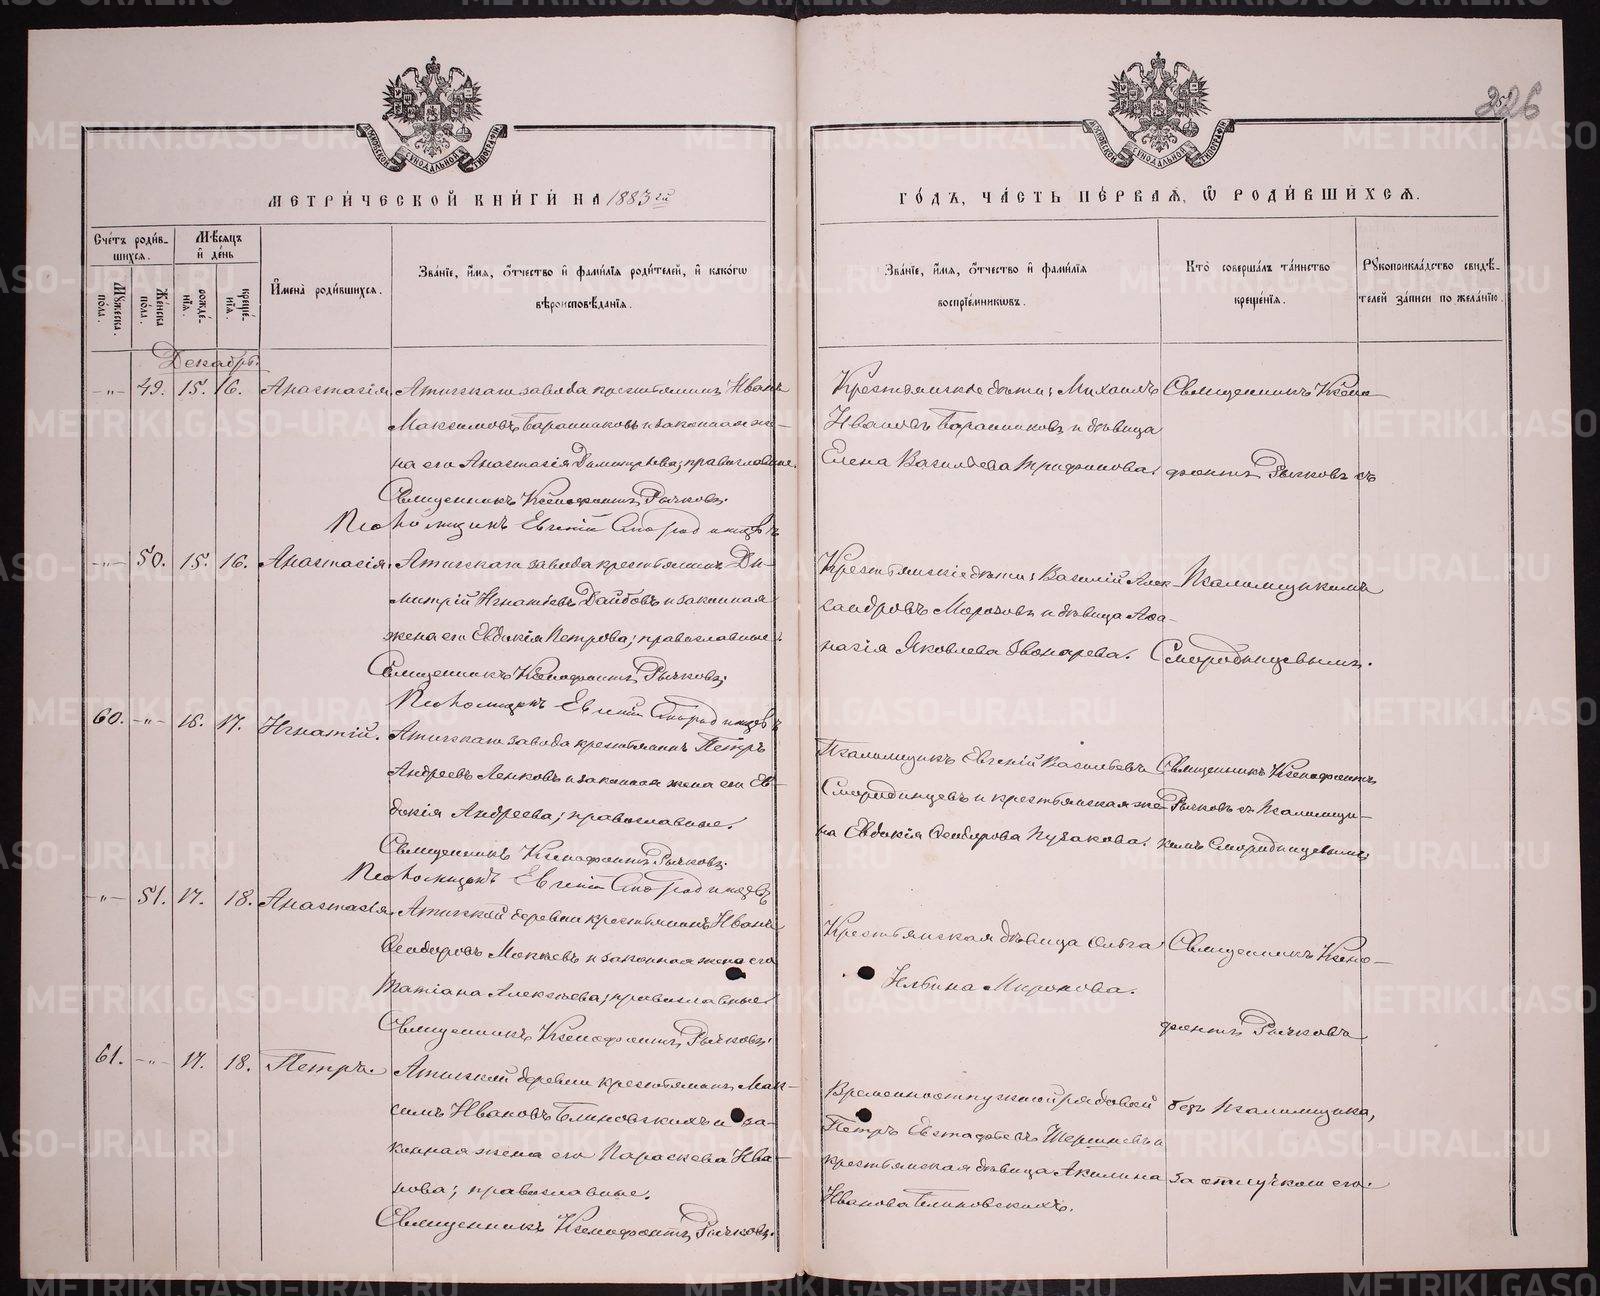 226
МОСКОВСКОЙ СѴНОДАЛЬНОЙ ТИПОГРАФІИ
МОСКОВСКОЙ СѴНОДАЛЬНОЙ ТИПОГРАФІИ
МЕТРИ́ЧЕСКОЙ КНИ́ГИ НА 1883й
ГО́ДЪ, ЧА́СТЬ ПЕ́РВАЯ, Ѿ РОДИ́ВШИХСЯ.
Сче́тъ роди́в-
шихся.
Мꙋжеска по́ла.
Же́нска по́ла.
Мѣ́сяцъ и҆ де́нь
рожде́-
нїя.
креще́-
нїя.
И҆мена̀ роди́вшихся.
Зва́нїе, и҆́мя, ѻ҆́тчество и҆ фами́лїя роди́телей, и҆ како́гѡ
вѣроисповѣ́данїя.
Зва́нїе, и҆́мя, ѻ҆́тчество и҆ фами́лїя
воспрїе́мникѡвъ.
Кто̀ соверша́лъ та́инство
креще́нїя.
Рꙋкоприкла́дство свидѣ́-
телей за́писи по жела́нїю.
Декабрь.
-"- 49. 15. 16. Анастасія Атигскаго завода крестьянинъ Иванъ
Максимовъ Баранниковъ и законная же-
на его Анастасія Димитріева; православные.
Священникъ Ксенофонтъ Рычковъ;
Псаломщикъ Евгеній Смородинцевъ
Крестьянскіе дѣти: Михаилъ
Ивановъ Баранниковъ и дѣвица
Елена Васильева Трифонова.
Священникъ Ксено-
фонтъ Рычковъ съ
-"- 50. 15. 16. Анастасія. Атигскаго завода крестьянинъ Ди-
митрій Игнатьевъ Дайбовъ и законная
жена его Евдокія Петрова; православные.
Священникъ Ксенофонтъ Рычковъ;
Псаломщикъ Евгеній Смородинцевъ
Крестьянскіе дѣти: Василій Алек-
сандровъ Морозовъ и дѣвица Аѳа-
насія Яковлева Звонарева.
Псаломщикомъ
Смородинцевымъ.
60. -"- 16. 17. Игнатій. Атигскаго завода крестьянинъ Петръ
Андреевъ Ленковъ и законная жена его Ев-
докія Андреева; православные.
Священникъ Ксенофонтъ Рычковъ;
Псаломщикъ Евгеній Смородинцевъ
Псаломщикъ Евгеній Васильевъ
Смородинцевъ и крестьянская же-
на Евдокія Ѳеодорова Пугакова.
Священникъ Ксенофонтъ
Рычковъ съ Псаломщи-
комъ Смородинцевымъ;
-"- 51. 17. 18. Анастасія. Атигской деревни крестьянинъ Иванъ
Ѳеодоровъ Мокѣевъ и законная жена его
Татіана Алексѣева; православные.
Священникъ Ксенофонтъ Рычковъ;
Крестьянская дѣвица Ольга
Ильина Миронова.
Священникъ Ксено-
фонтъ Рычковъ
61. -"- 17. 18. Петръ. Атигской деревни крестьянинъ Мак-
симъ Ивановъ Блиновскихъ и за-
конная жена его Параскева Ива-
нова; православные.
Священникъ Ксенофонтъ Рычковъ.
Временноотпускной рядовой
Петръ Евстафьевъ Шершневъ и
крестьянская дѣвица Акилина
Иванова Блиновскихъ.
безъ Псаломщика,
за отлучкою его.
METRIKI.GASO-URAL.RU